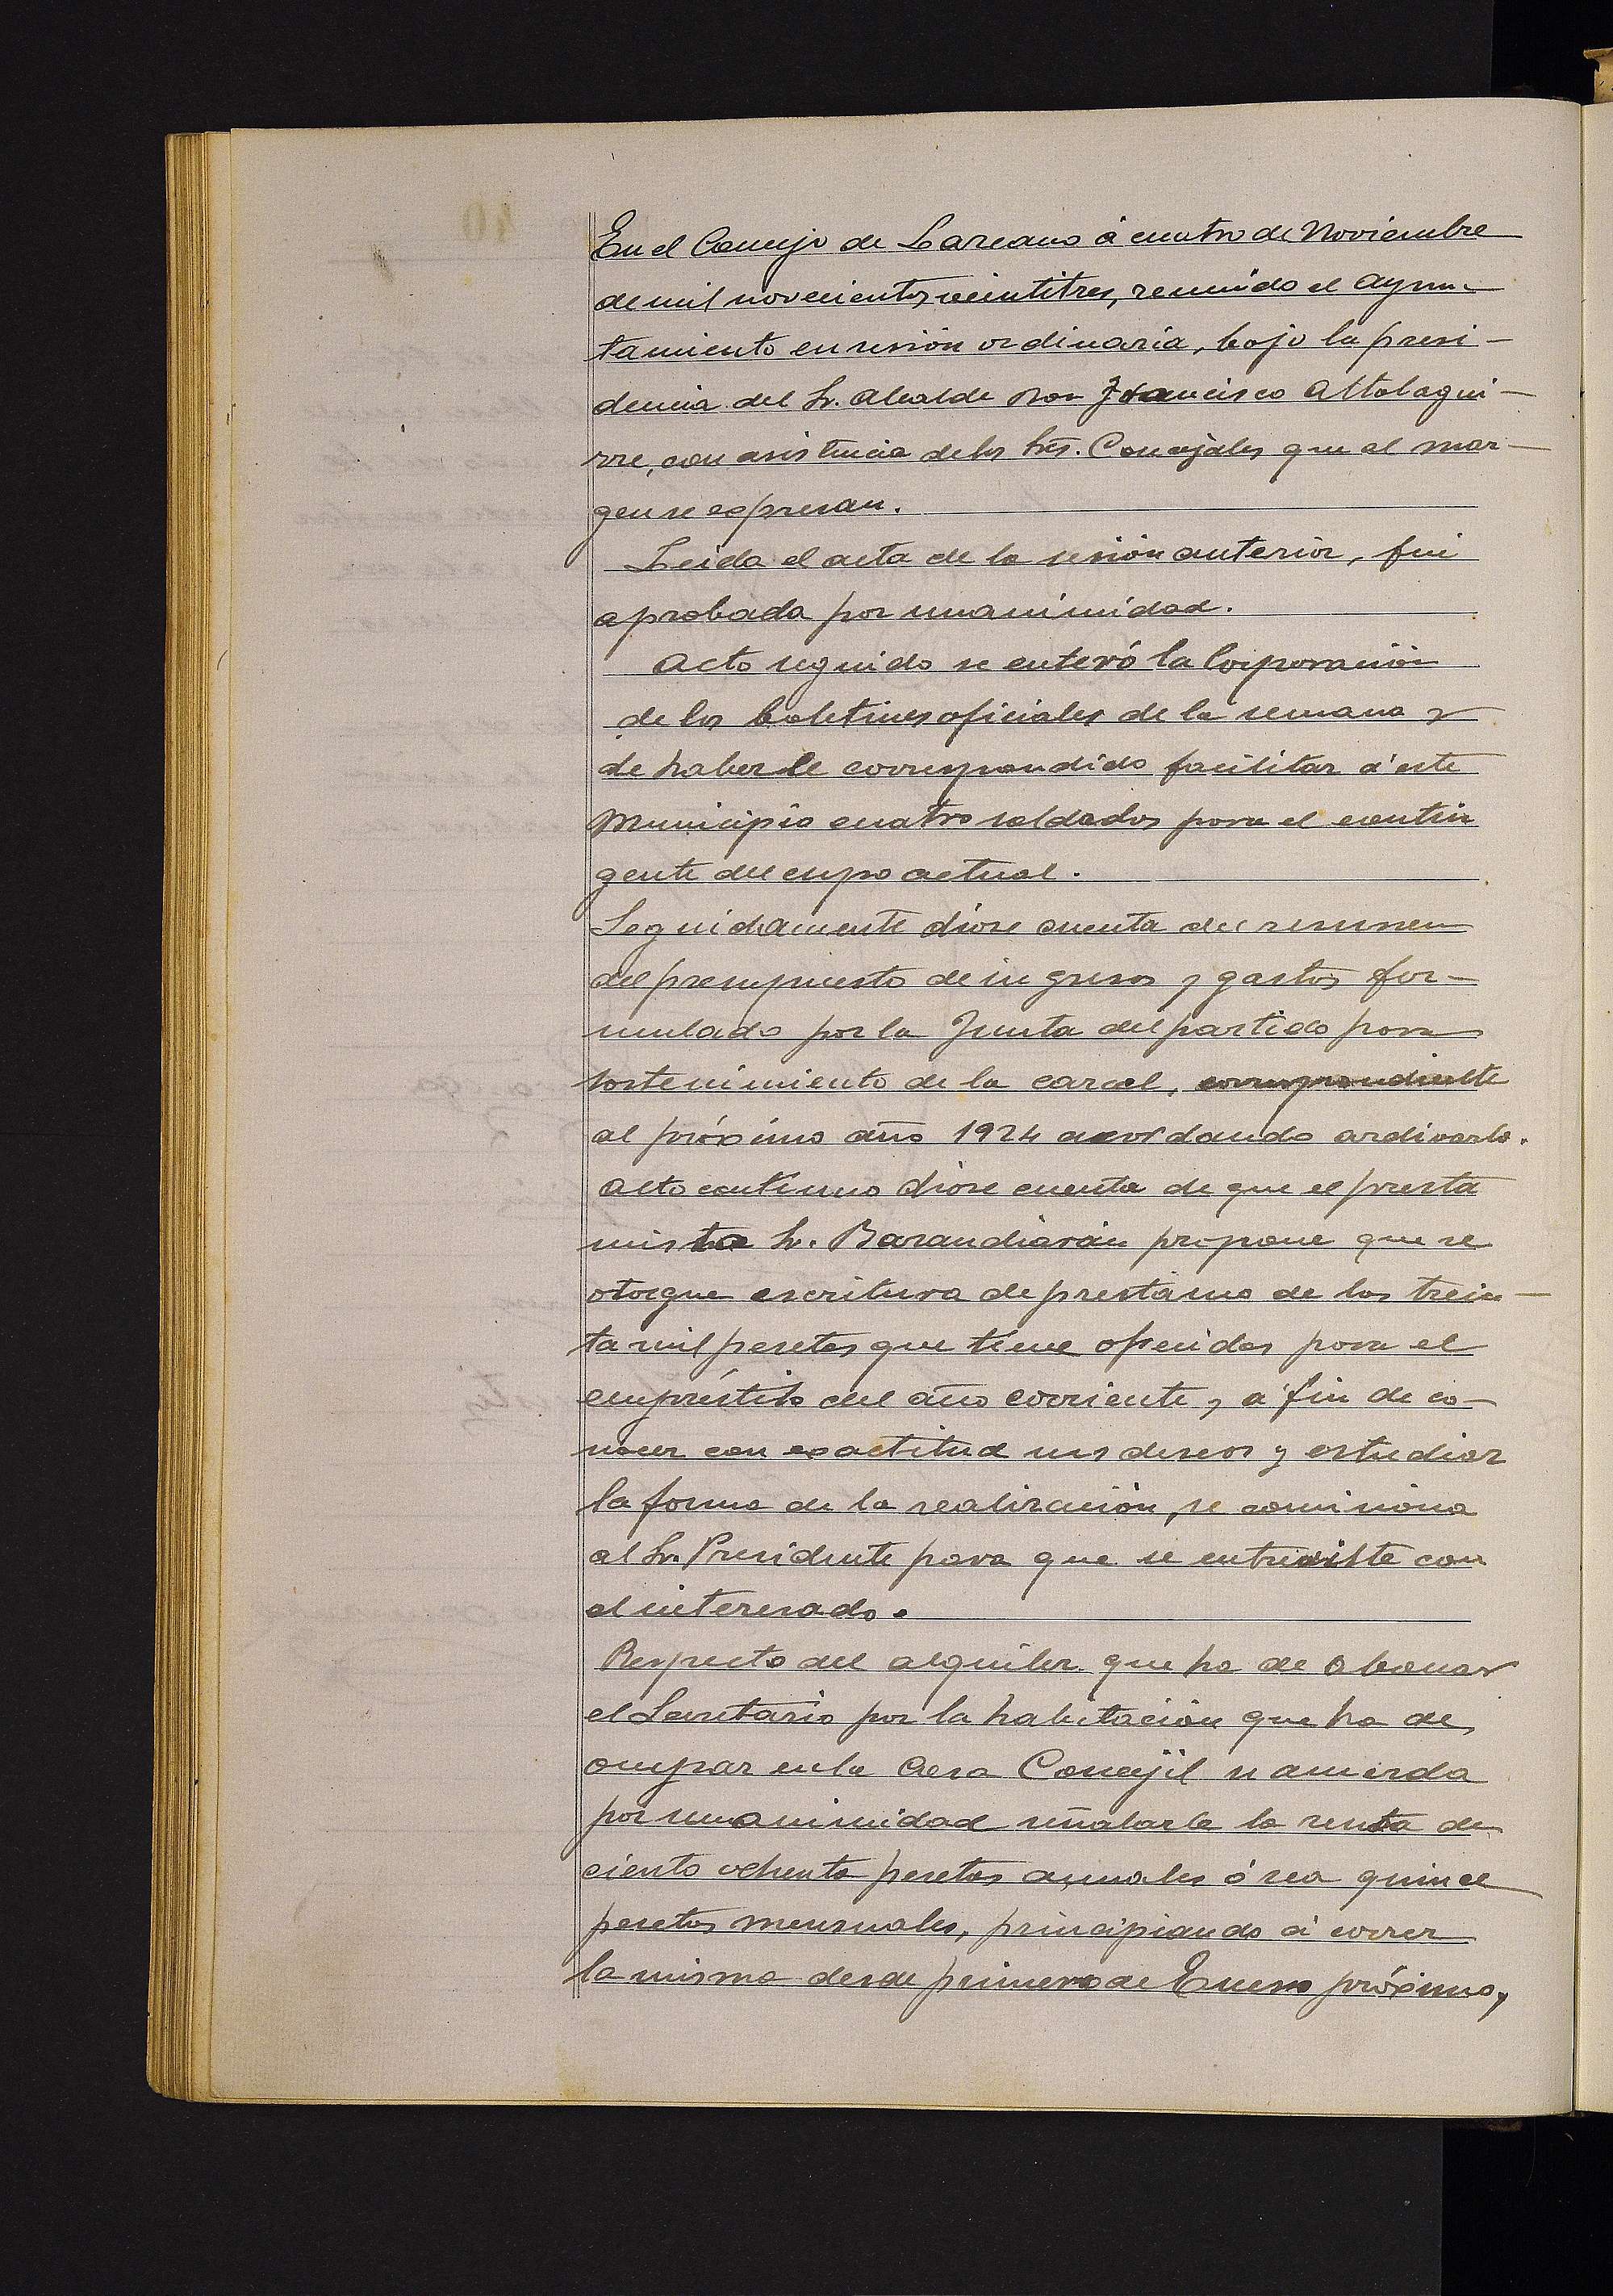 En el Concejo de Lazcano á cuatro de Noviembre
de mil novecientos veintitres, reunido el Ayun-
tamiento en sesión ordinaria, bajo la presi-
dencia del Sr. Alcalde Don Francisco Altolagui-
rre, con asistencia de los Srés. Concejales que al mar-
gen se expresan.
Leida el acta de la sesión anterior, fué
aprobada por unanimidad.
Acto seguido se enteró la Corporación
de los boletines oficiales de la semana y
de haberle correspondido facilitar á este
Municipio cuatro soldados para el contin
gente del cupo actual.
Seguidamente dióse cuenta del resumen
del presupuesto de ingresos y gastos for-
mulado por la Junta del partido para
sostenimiento de la carcel, correspondiente
al próximo año 1924 acordando archivarlo.
Acto continuo dióse cuenta de que el presta
mista Sr. Barandiarán propone que se
otorgue escritura de prestamo de las trein-
ta mil pesetas que tiene ofrecidas para el
empréstito del año corriente, y á fin de co-
nocer con exactitud sus deseos y estudiar
la forma de la realización, se comisiona
al Sr. Presidente para que se entreviste con
el interesado.
Respecto del alquiler que ha de abonar
el Secretario por la habitación que ha de
ocupar en la Casa Concejil se acuerda
por unanimidad señalarle la renta de
ciento ochenta pesetas anuales ó sea quince
pesetas mensuales, principiando á correr
la misma desde primero de Enero próximo,